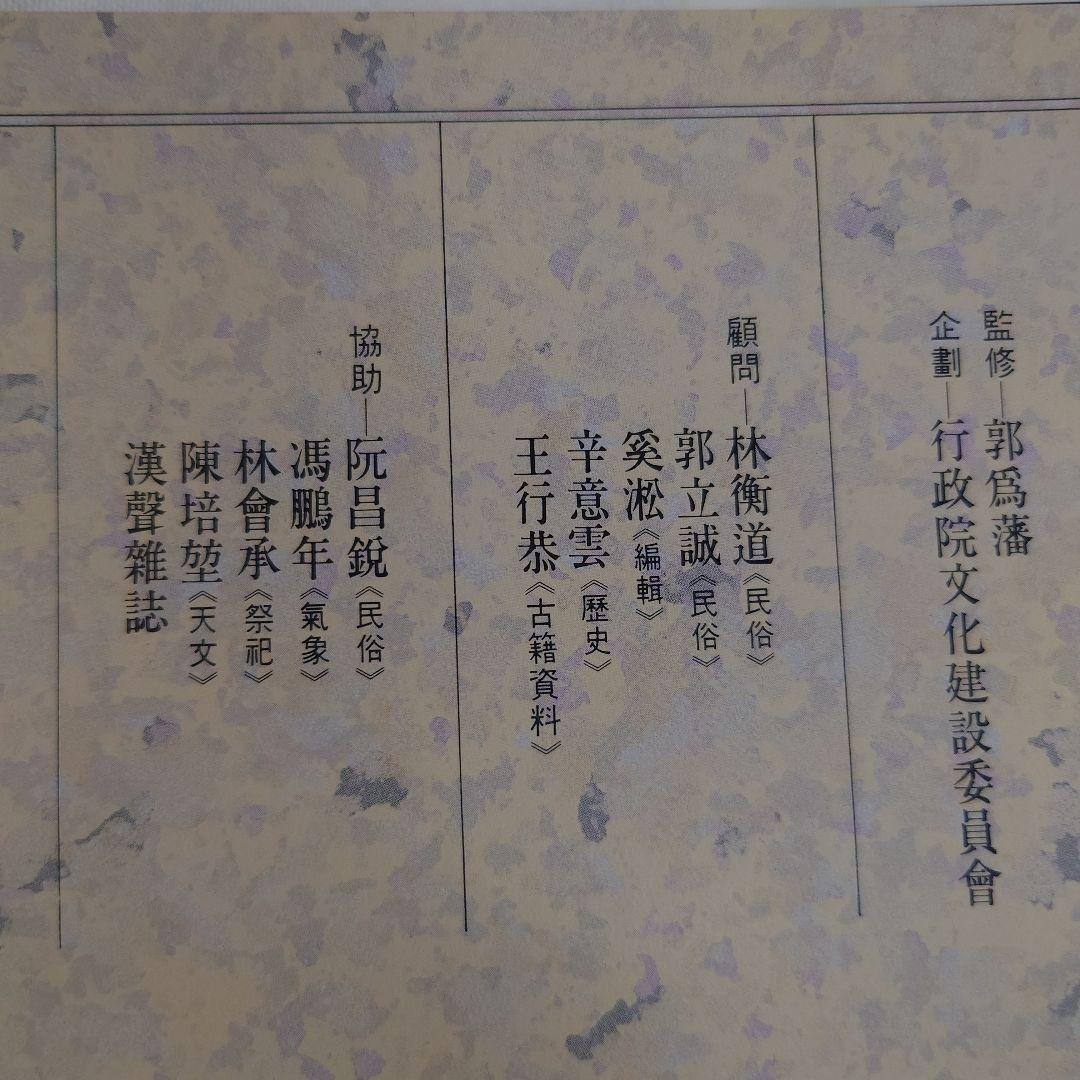 監修—郭爲藩
企劃—行政院文化建設委員會
顧問—林衡道《民俗》
郭立誠《民俗》
奚淞《編輯》
辛意雲《歷史》
王行恭《古籍資料》
協助—阮昌銳《民俗》
馮鵬年《氣象》
林會承《祭祀》
陳培堃《天文》
漢聲雜誌